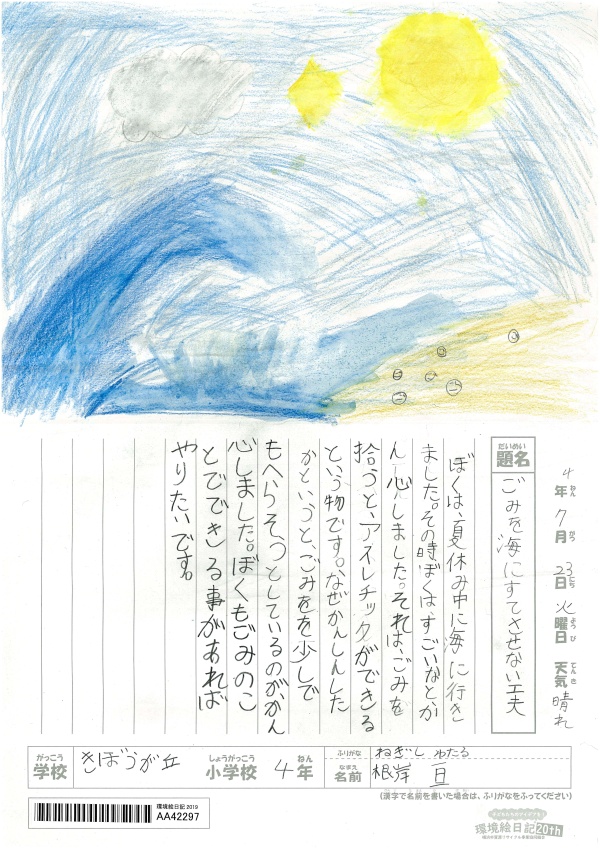 4年ねん7月がつ23日にち火曜日ようび 天気てんき 晴れ
だいめい
題名 ごみを海にすてさせない工夫
ぼくは、夏休み中に海に行き
ました。その時ぼくは、すごいなとか
ん心しました。それは、ごみを
拾うと、アスレチックができる
という物です。なぜかんしんした
かというと、ごみをを少しで
もへらそうとしているのがかん
心しました。ぼくもごみのこ
とでできる事があれば
やりたいです。
がっこう しょうがっこう ねん ふりがな ねぎし わたる
学校 きぼうが丘 小学校 4年 なまえ 名前 根岸 亘
(漢字で名前を書いた場合は、ふりがなをふってください)
環境絵日記 2019
AA42297
環境絵日記20th